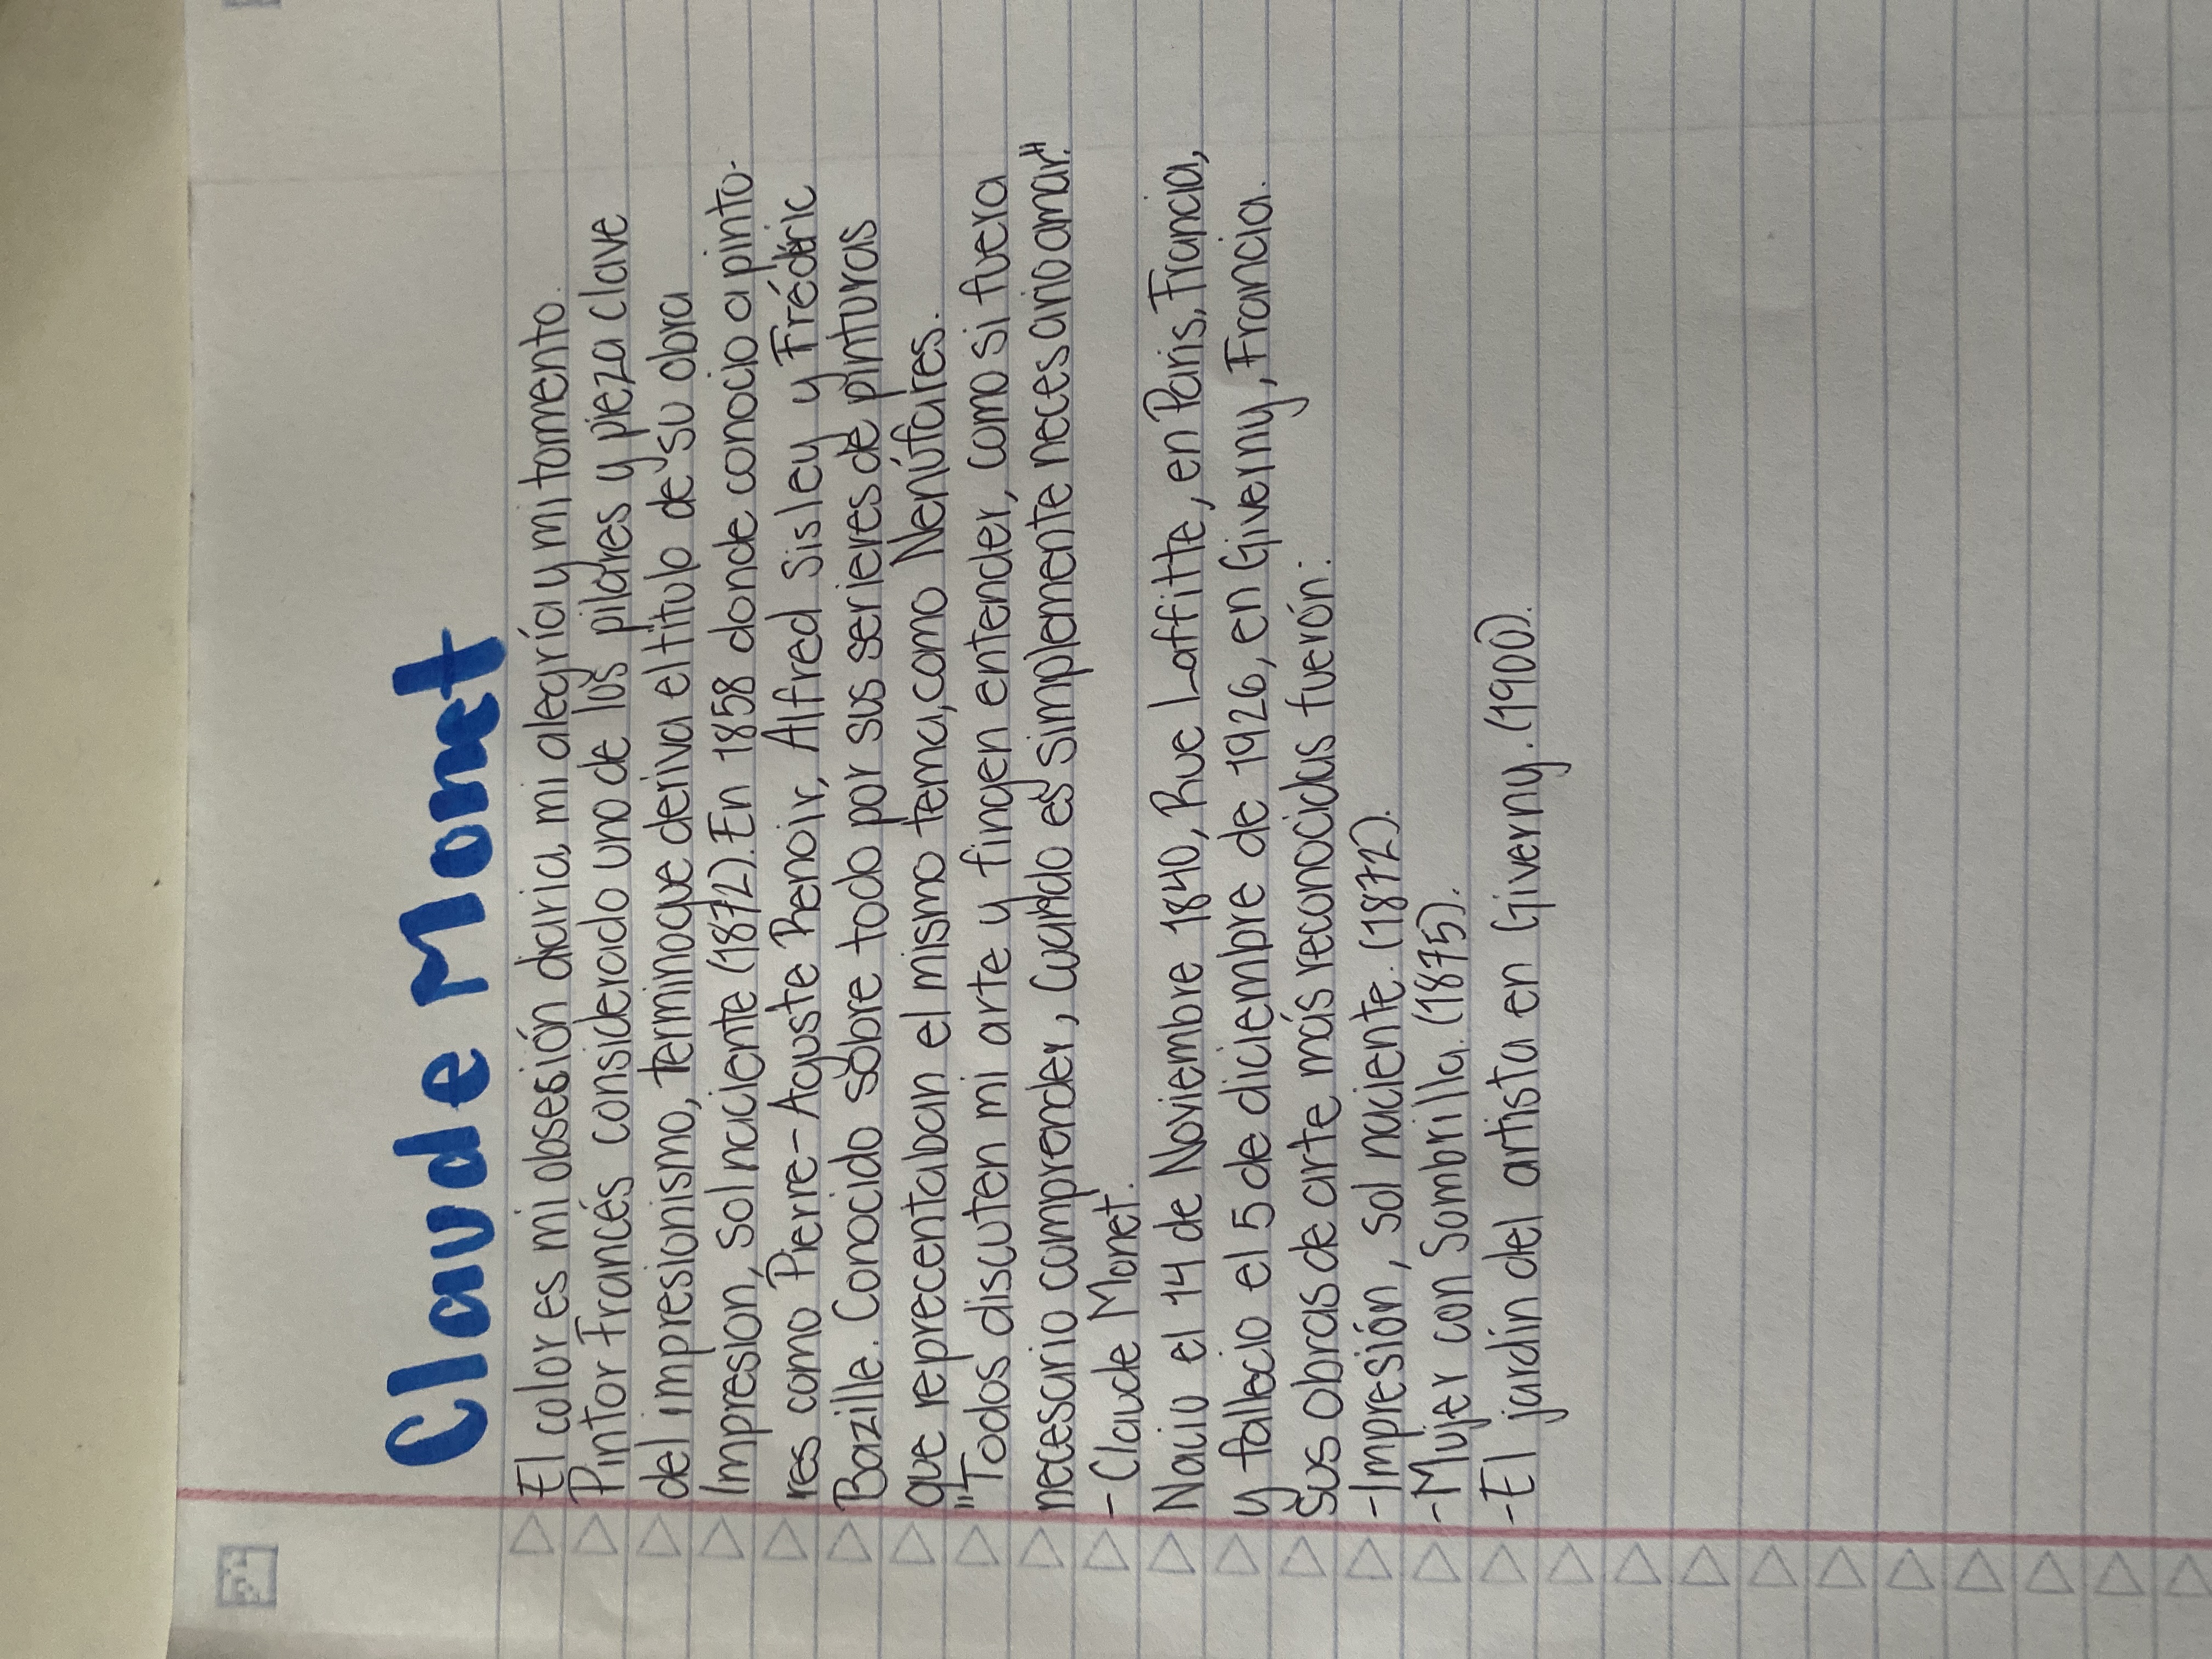 Claude Monet
El color es mi obsesión diaria, mi alegría y mi tormento.
Pintor Francés considerado uno de los pilares y pieza clave
del impresionismo, terminoque deriva el titulo de su obra
Impresion, sol naciente (1872). En 1858 donde conocio a pinto-
res como Pierre-Aguste Renoir, Alfred Sisley y Frédéric
Bazille. Conocido sobre todo por sus serieres de pinturas
que reprecentaban el mismo tema, como Nenúfares.
"Todos discuten mi arte y fingen entender, como si fuera
necesario comprender, cuando es simplemente necesario amar."
- Claude Monet.
Nacio el 14 de Noviembre 1840, Rue Laffitte, en Paris, Francia,
y fallecio el 5 de diciembre de 1926, en Giverny, Francia.
Sus obras de arte más reconocidas fuerón:
-Impresión, sol naciente. (1872).
-Mujer con Sombrilla. (1875).
-El jardin del artista en Giverny. (1900).